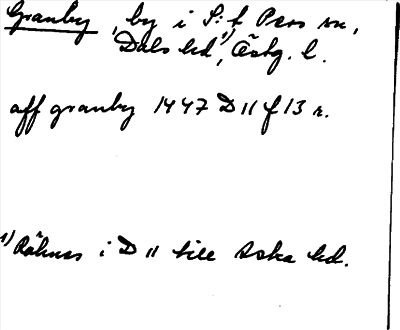 Granby, by i S:t Pers sn,
Dals hd¹⁾, Östg. l.
aff granby 1447 D 11 f 13 r.
¹⁾ Räknas i D 11 till Aska hd.